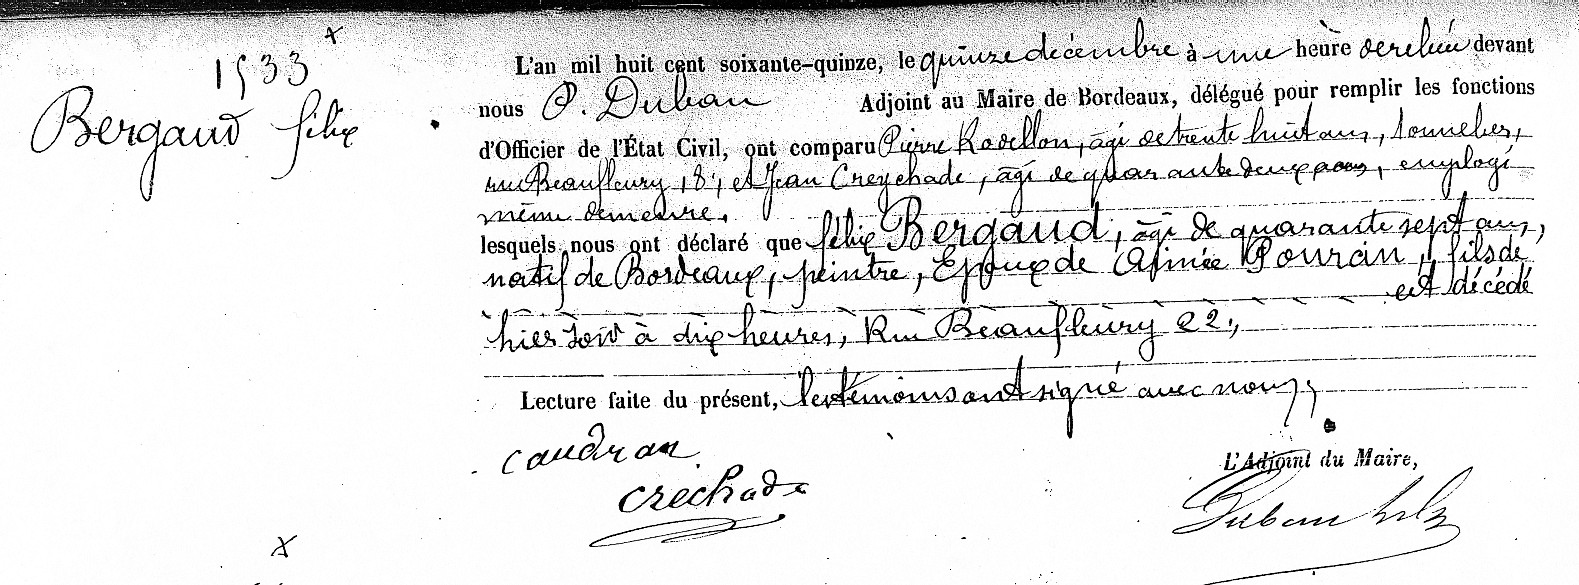 1533
Bergaud félix
L'an mil huit cent soixante-quinze, le quinze décembre à une heure de relevée devant
nous O. Duban Adjoint au Maire de Bordeaux, délégué pour remplir les fonctions
d'Officier de l'État Civil, ont comparu Pierre agé de trente huit ans, tonnelier,
rue Beaufleury, 18, et Jean Creychade, agé de quarante deux ans, employé
même demeure.
lesquels nous ont déclaré que félix Bergaud, agé de quarante sept ans,
natif de Bordeaux, peintre, Epoux de Aimée Pourcin, fils de
est décédé
hier soir à dix heures, Rue Beaufleury 22,
Lecture faite du présent, les témoins ont signé avec nous,
caudran
crechade
L'Adjoint du Maire,
Duban